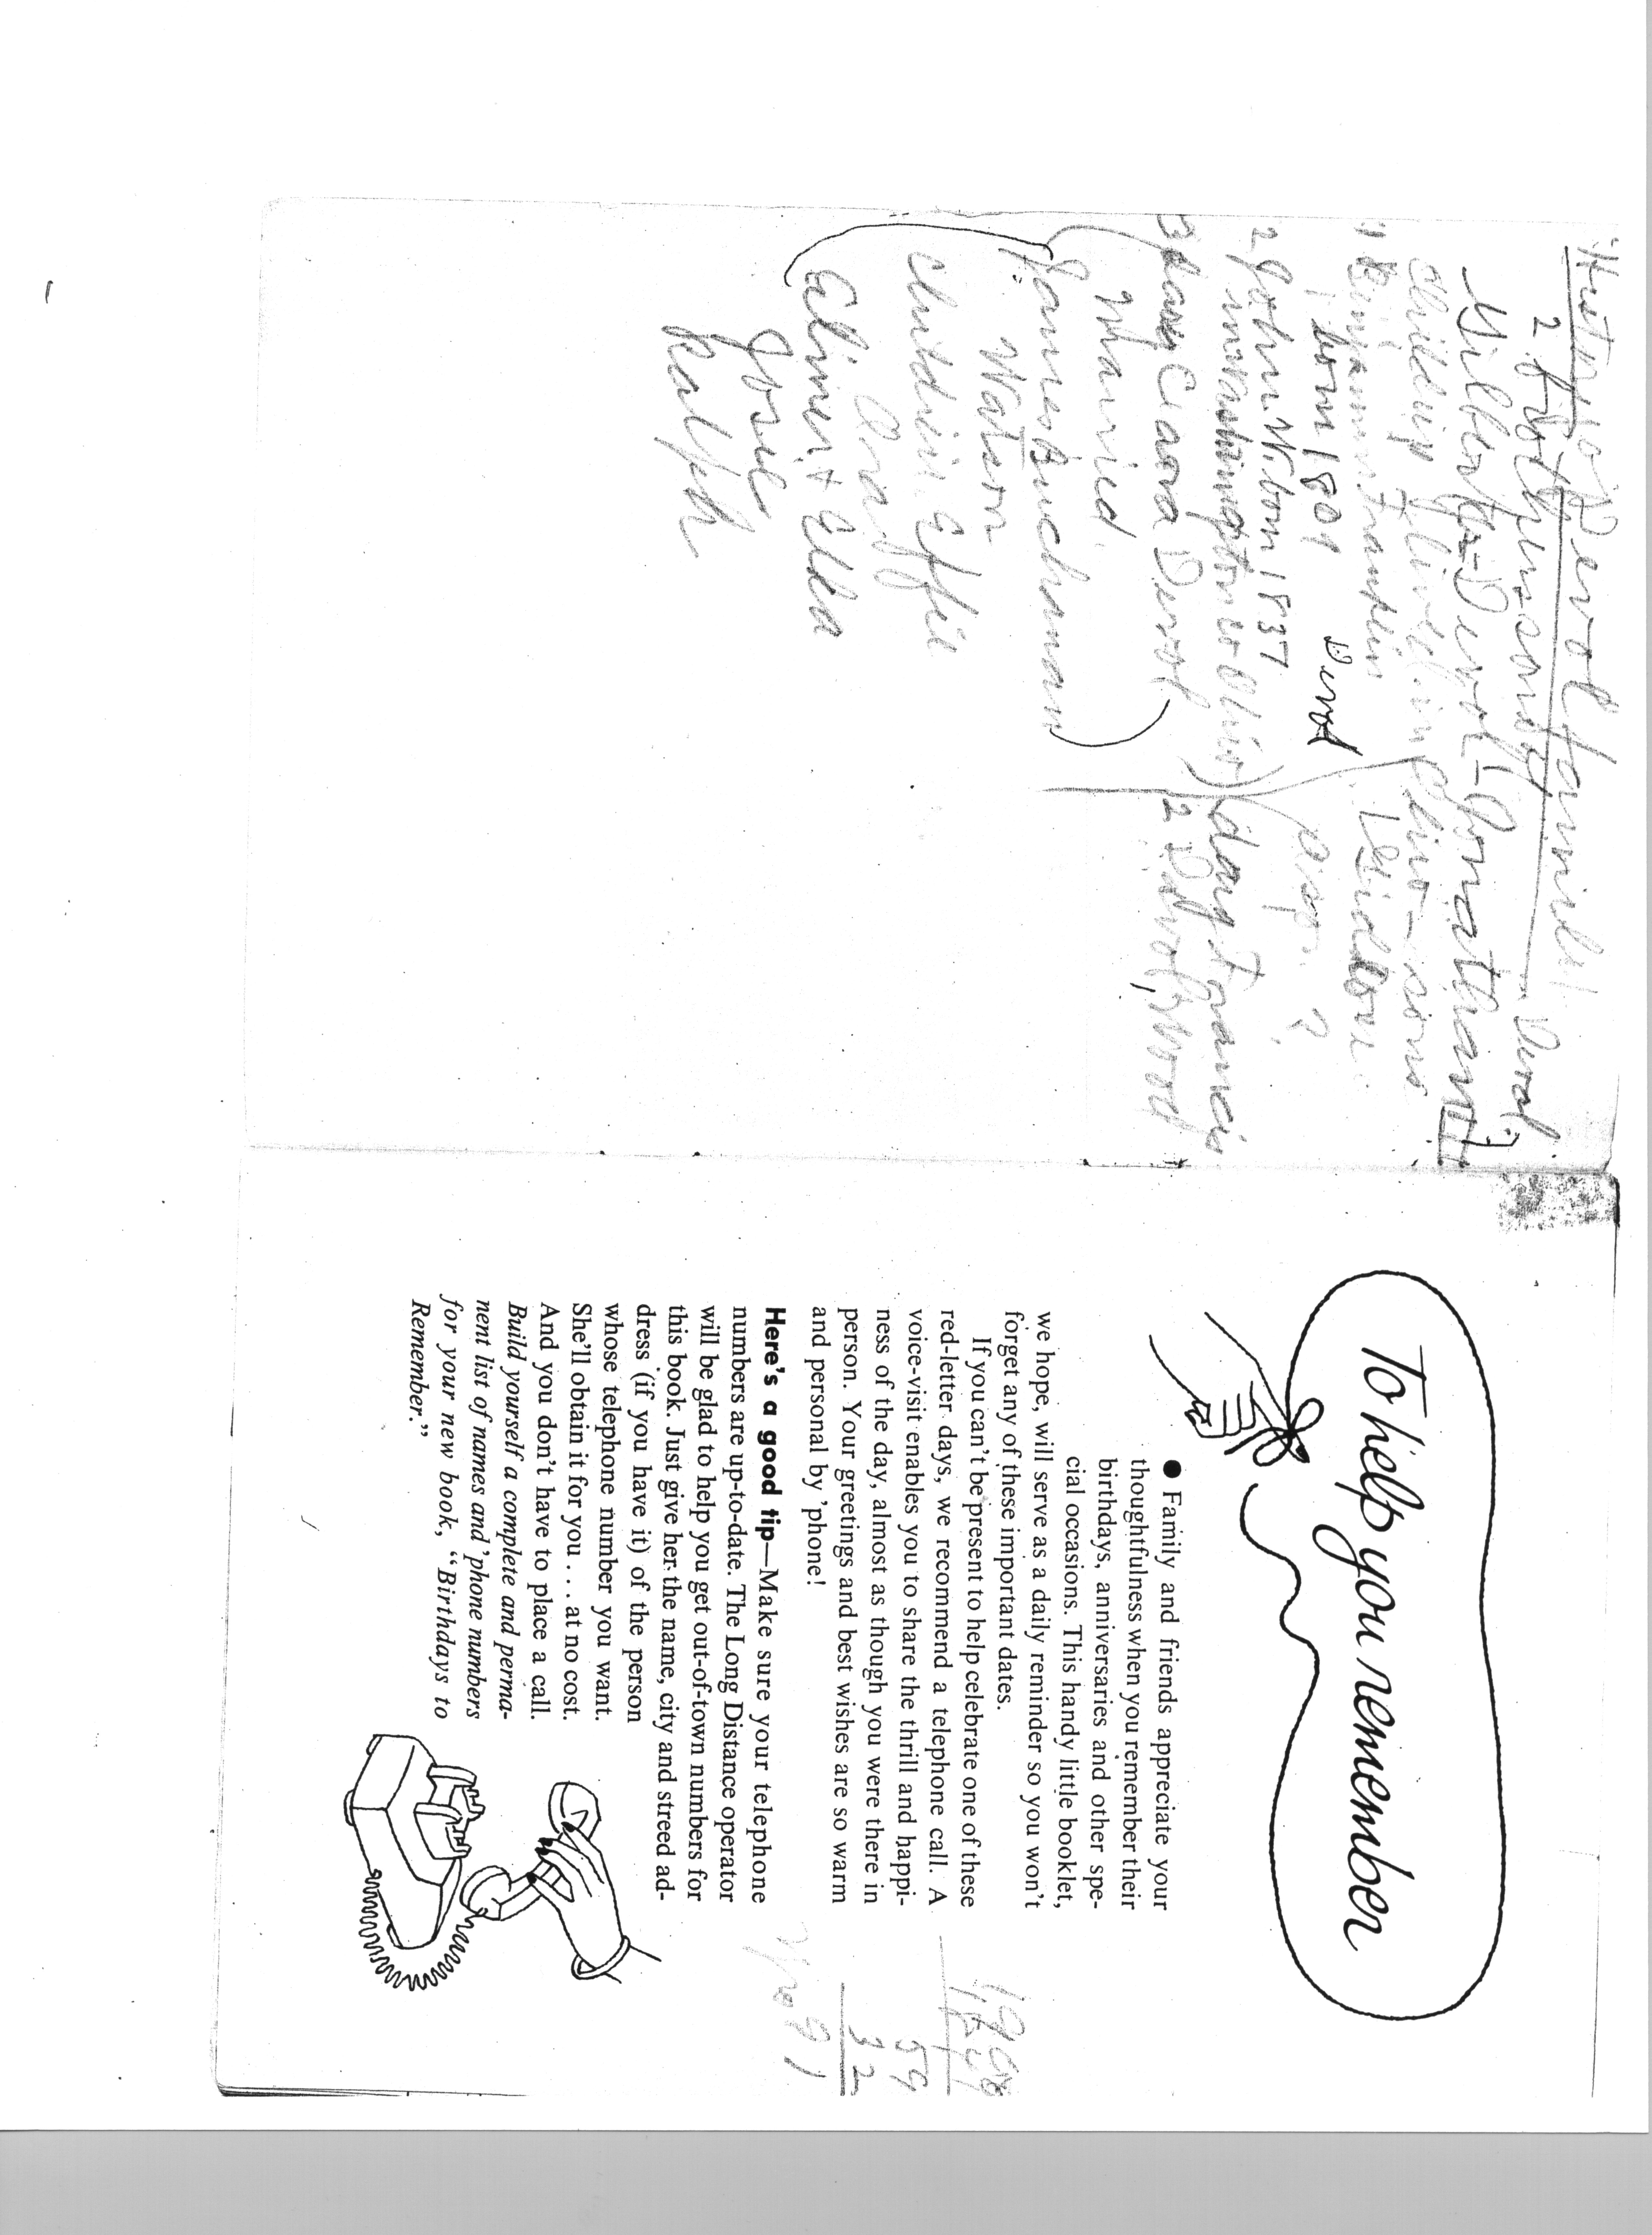 Hist. of Devol family
2 Brothers sons of Devol
Gilbert Devol - Jonathan
children lived in Ohio - sons
1 Benjamin Franklin
born 1809 Devol
2 John W. born 1837
in Washington co Ohio
3 Clara Devol
Married
James Buchanan
Watson
children Effie
Ora
Elmer + Ella
Josie
Ralph
?
day Francis
2 Devol, Wood
To help you remember
● Family and friends appreciate your
thoughtfulness when you remember their
birthdays, anniversaries and other spe-
cial occasions. This handy little booklet,
we hope, will serve as a daily reminder so you won't
forget any of these important dates.
If you can't be present to help celebrate one of these
red-letter days, we recommend a telephone call. A
voice-visit enables you to share the thrill and happi-
ness of the day, almost as though you were there in
person. Your greetings and best wishes are so warm
and personal by 'phone!
Here's a good tip—Make sure your telephone
numbers are up-to-date. The Long Distance operator
will be glad to help you get out-of-town numbers for
this book. Just give her the name, city and streed ad-
dress (if you have it) of the person
whose telephone number you want.
She'll obtain it for you . . . at no cost.
And you don't have to place a call.
Build yourself a complete and perma-
nent list of names and 'phone numbers
for your new book, “Birthdays to
Remember.”
59
32
91